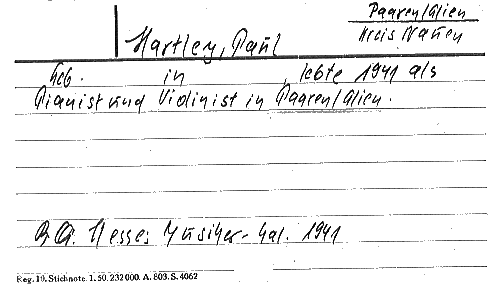 Paaren/Glien
Kreis Nauen
Hartley, Paul
Geb. in , lebte 1941 als
Pianist und Violinist in Paaren/Glien.
Hesses Musiker-Kal. 1941
Reg. 19. Stichnote. 1. 50. 232 000. A. 803. S. 4062